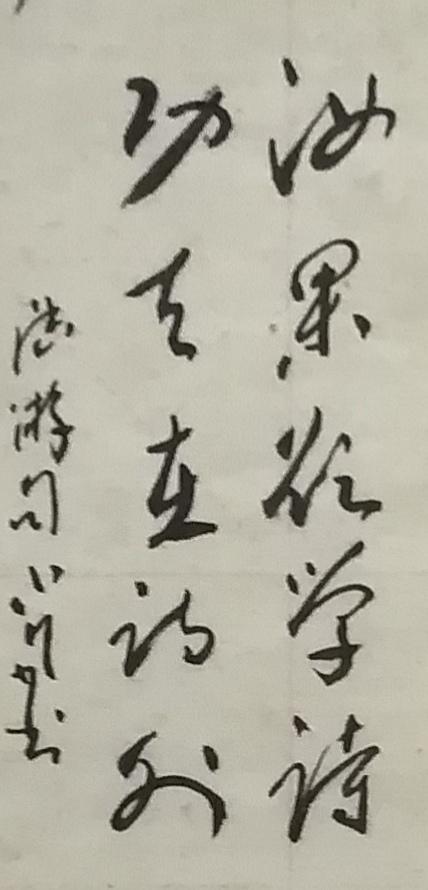 汝果欲学诗
功夫在诗外
游句
书